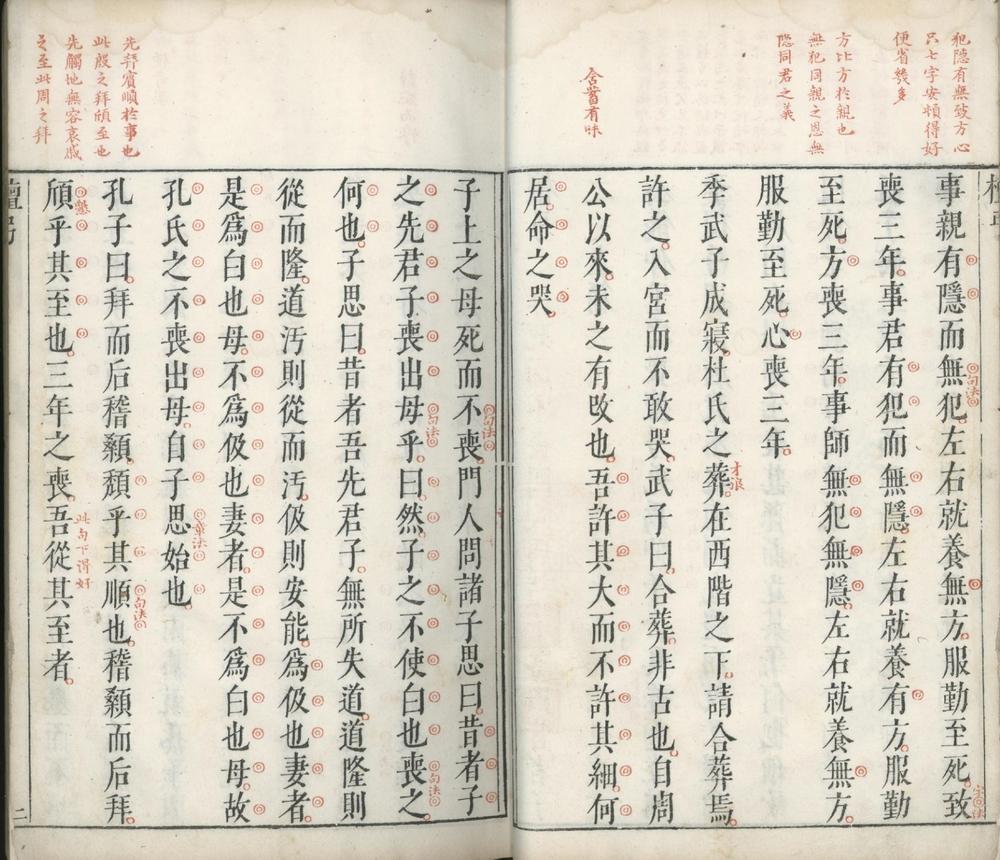 犯隐有無致方心
只七字安頓得好
便省幾多
方比方於親也
無犯同親之恩無
隐同君之義
含蓄有味
事親有隱而無犯左右就養無方服勤至死致
喪三年事君有犯而無隱左右就養有方服勤
至死方喪三年事師無犯無隱左右就養無方
服勤至死心喪三年
季武子成寢杜氏之葬在西階之下請合葬焉
許之入宮而不敢哭武子曰合葬非古也自周
公以來未之有改也吾許其大而不許其細何
居命之哭
句法
字法
才浪
先拜賓順於事也
此殷之拜頎至也
先觸地無容哀戚
之至此周之拜
子上之母死而不喪門人問諸子思曰昔者子
之先君子喪出母乎曰然子之不使白也喪之
何也子思曰昔者吾先君子無所失道道隆則
從而隆道汚則從而汚伋則安能爲伋也妻者
是爲白也母不爲伋也妻者是不爲白也母故
孔氏之不喪出母自子思始也
孔子曰拜而后稽顙頹乎其順也稽顙而后拜
頎乎其至也三年之喪吾從其至者
句法
句法
句法
章法
句法
懇
此句下得好
檀弓
二